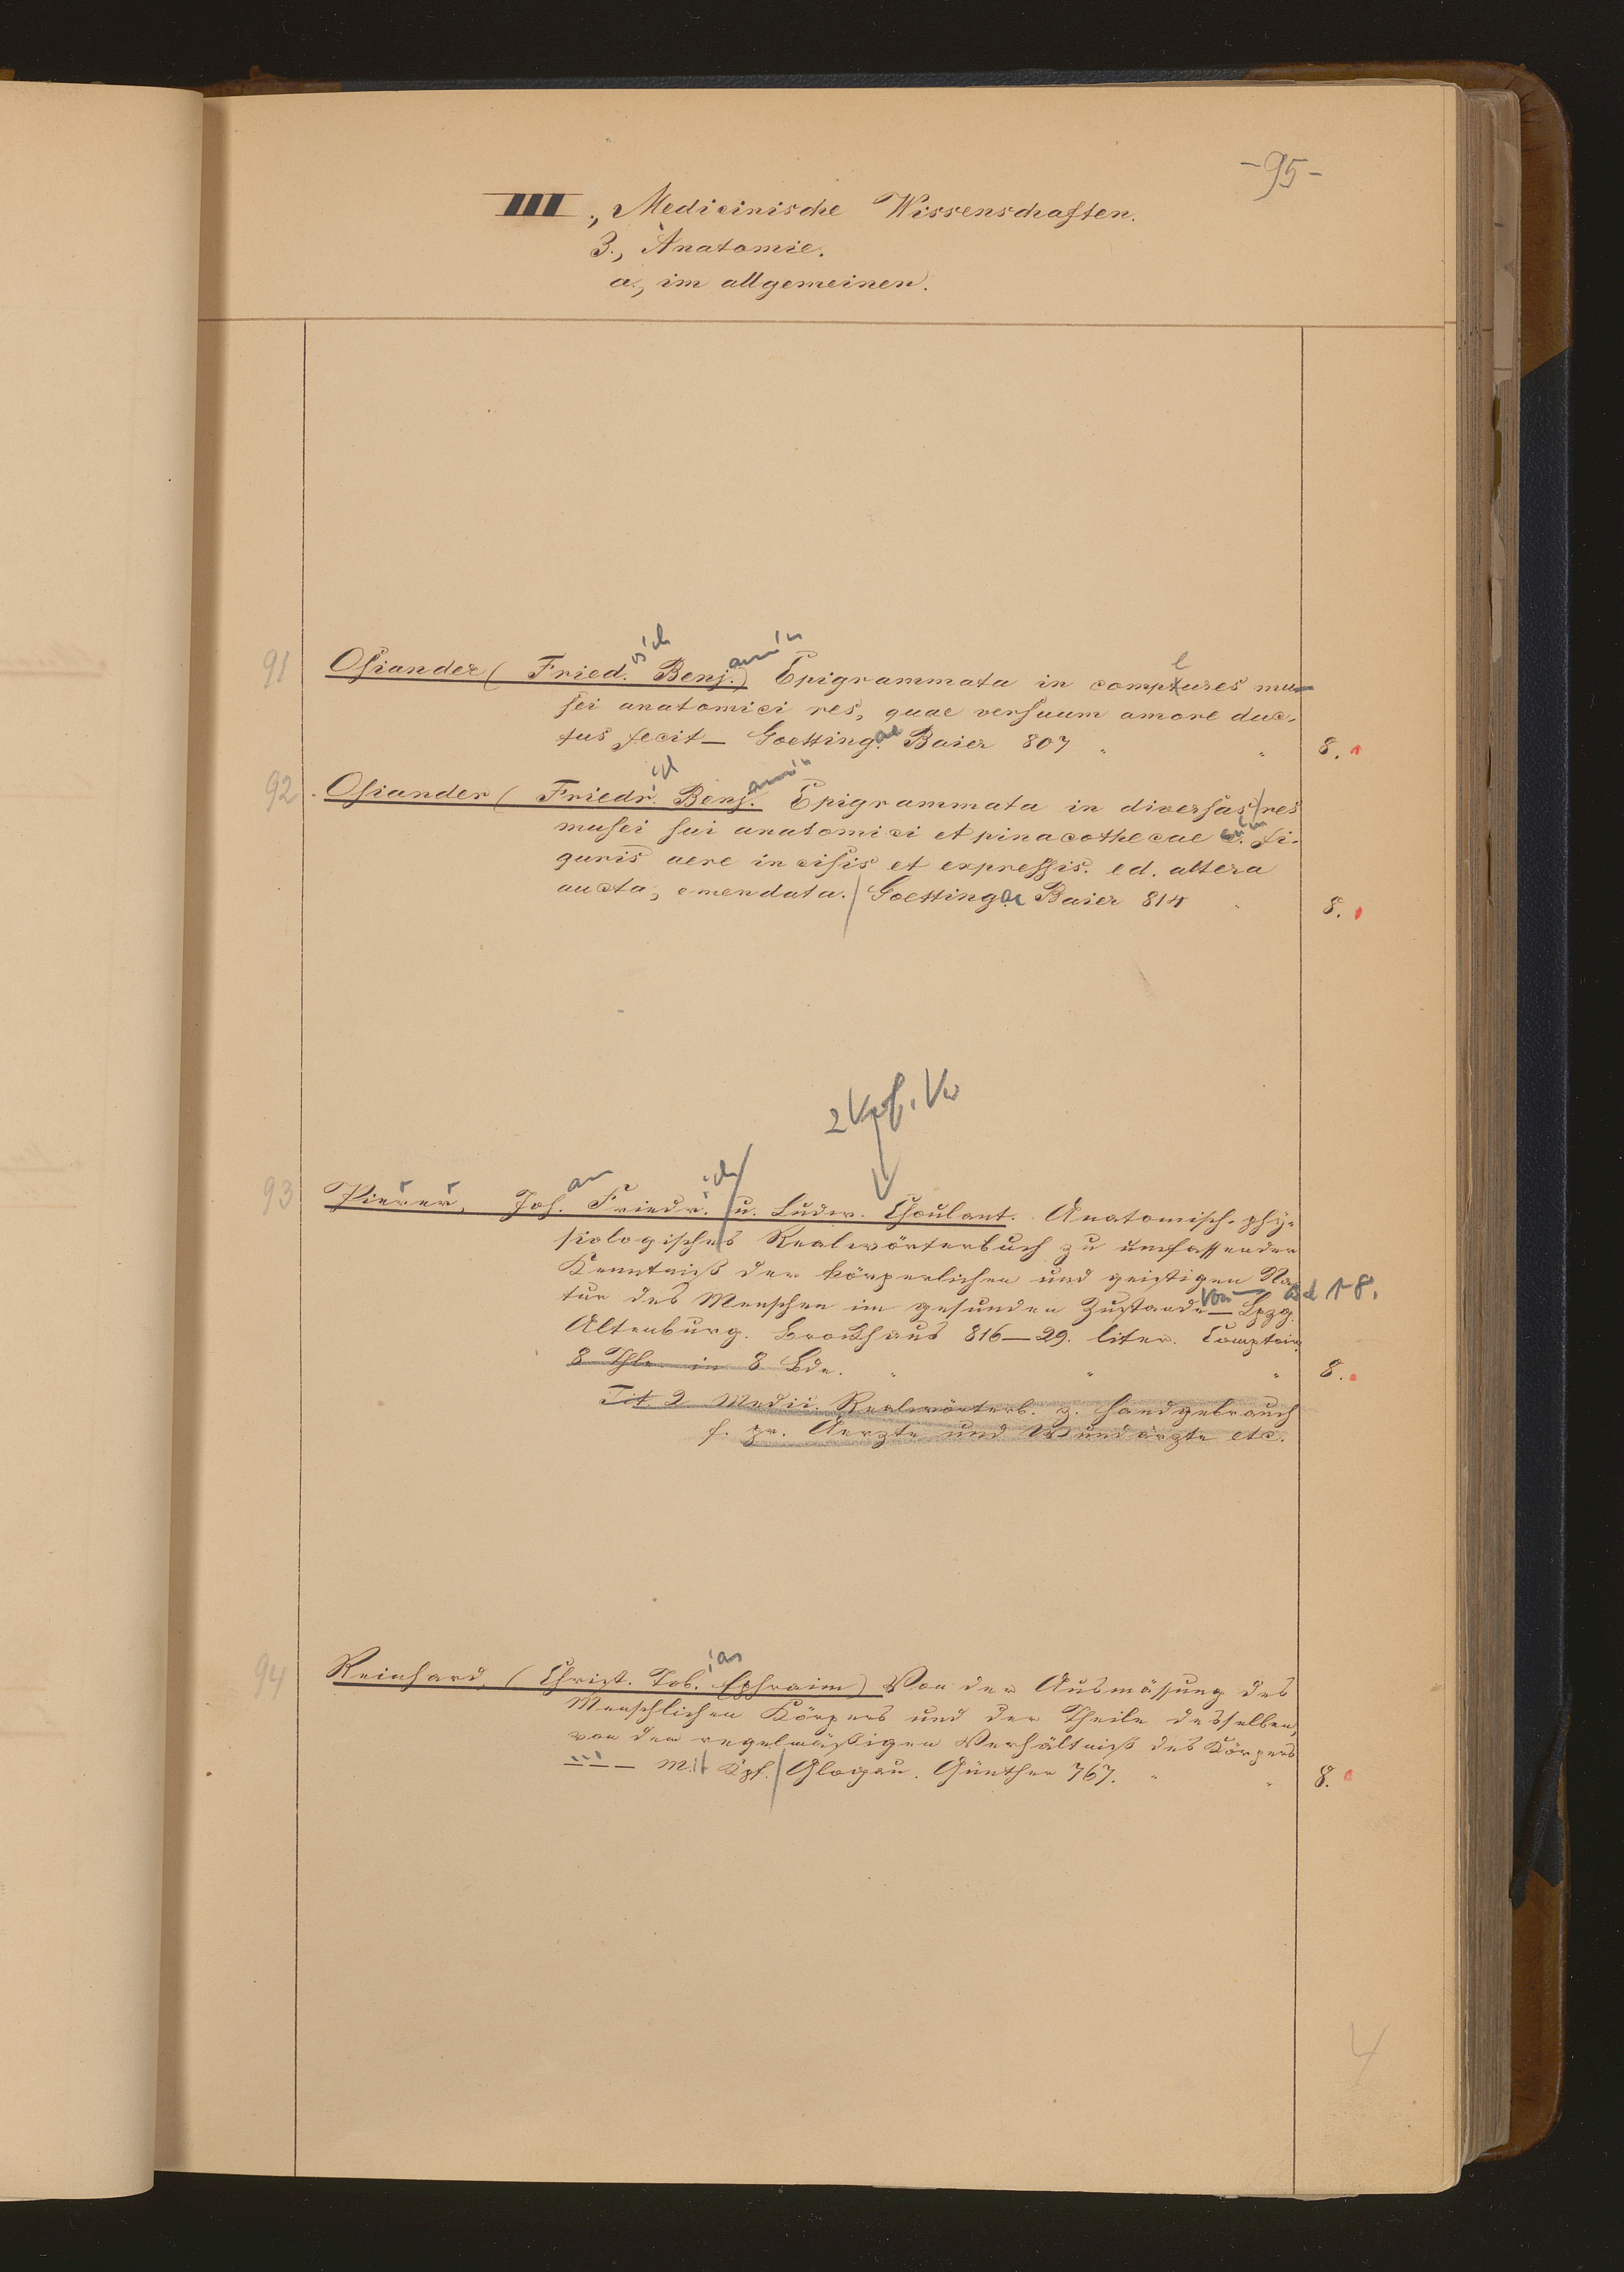 -95-
III., Medicinische Wissenschaften.
3., Anatomie.
a., im allgemeinen.
91 Osiander (Fried.rich Benj.amin) Epigrammata in complures mu-
sei anatomici res, quae versuum amore duc-
tus fecit — Goetting.ae Baier 807 " " 8.
92 Osiander (Friedr.ich Benj.amin Epigrammata in diversas/res
musei sui anatomici et pinacothecae cum fi-
guris aere incisis et expressis. ed. altera
aucta, emendata. / Goettingae Baier 814 " 8.
2 Vrf.
93 Pierer, Joh.an Friedr.ich / u. Ludw. Choulant. Anatomisch-phy-
siologisches Realwörterbuch zu umfassender
Kenntniß der körperlichen und geistigen Na-
tur des Menschen im gesunden Zustande — Lpzg. Von Bd 1-8.
Altenburg. Brockhaus 816—29. liter. Comptoir
8 Thle in 8 Bde. " " " 8.
Tit. 2 Medic. Realwörterb. z. Handgebrauch
f. pr. Aerzte und Wundärzte etc.
94 Reinhard, (Christ.ian Tob. Ephraim) Von der Ausmässung des
Menschlichen Körpers und der Theile desselben,
von dem regelmäßigen Verhältniß des Körpers
... — Mit Kpf. / Glogau. Günther 767. " " 8.
4